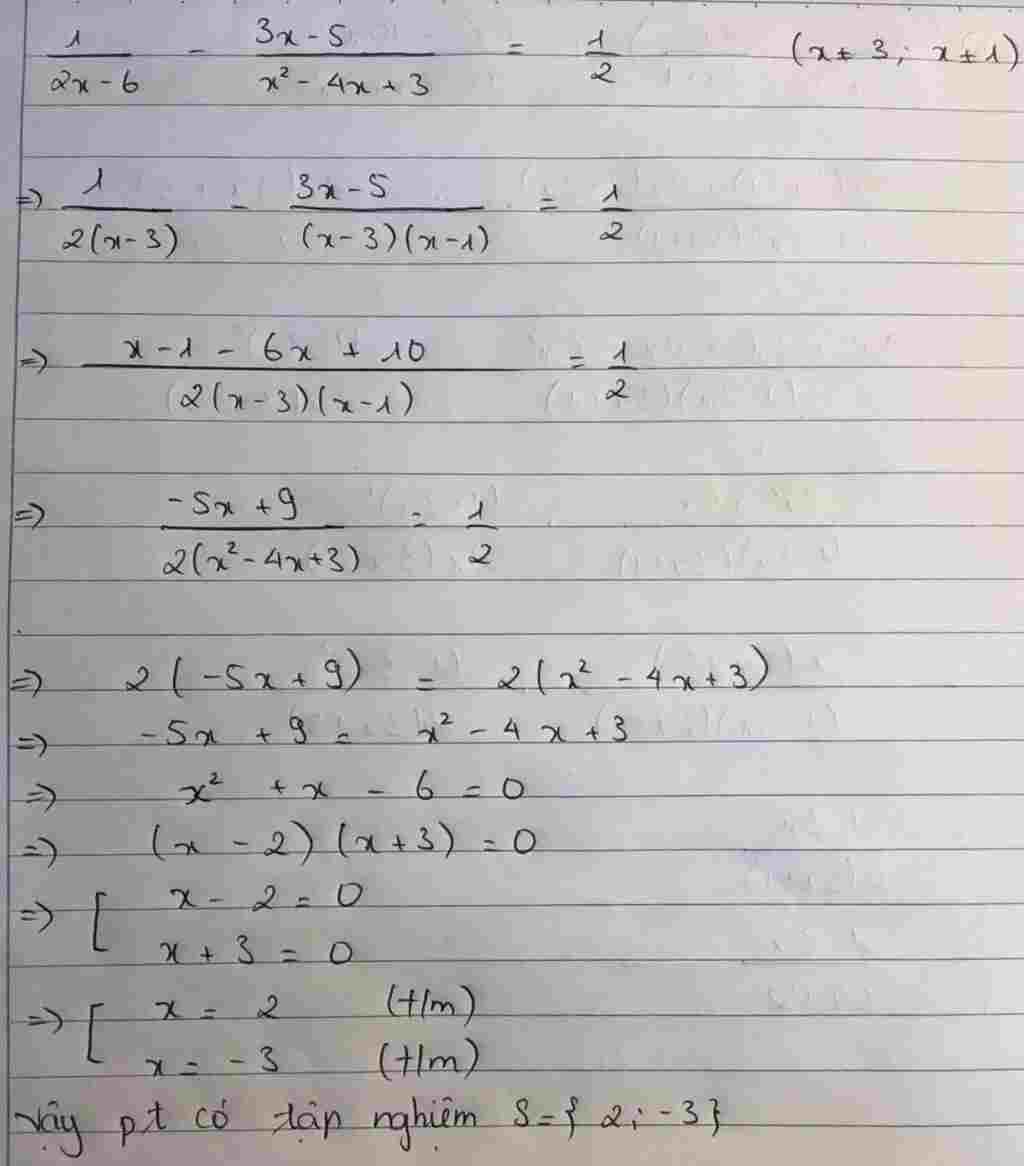 1/(2x - 6) - (3x - 5)/(x² - 4x + 3) = 1/2 (x ≠ 3; x ≠ 1)
=> 1/(2(x - 3)) - (3x - 5)/((x - 3)(x - 1)) = 1/2
=> (x - 1 - 6x + 10)/(2(x - 3)(x - 1)) = 1/2
=> (-5x + 9)/(2(x² - 4x + 3)) = 1/2
=> 2(-5x + 9) = 2(x² - 4x + 3)
=> -5x + 9 = x² - 4x + 3
=> x² + x - 6 = 0
=> (x - 2)(x + 3) = 0
=> [ x - 2 = 0
x + 3 = 0
=> [ x = 2 (t/m)
x = -3 (t/m)
Vậy pt có tập nghiệm S = { 2; -3 }